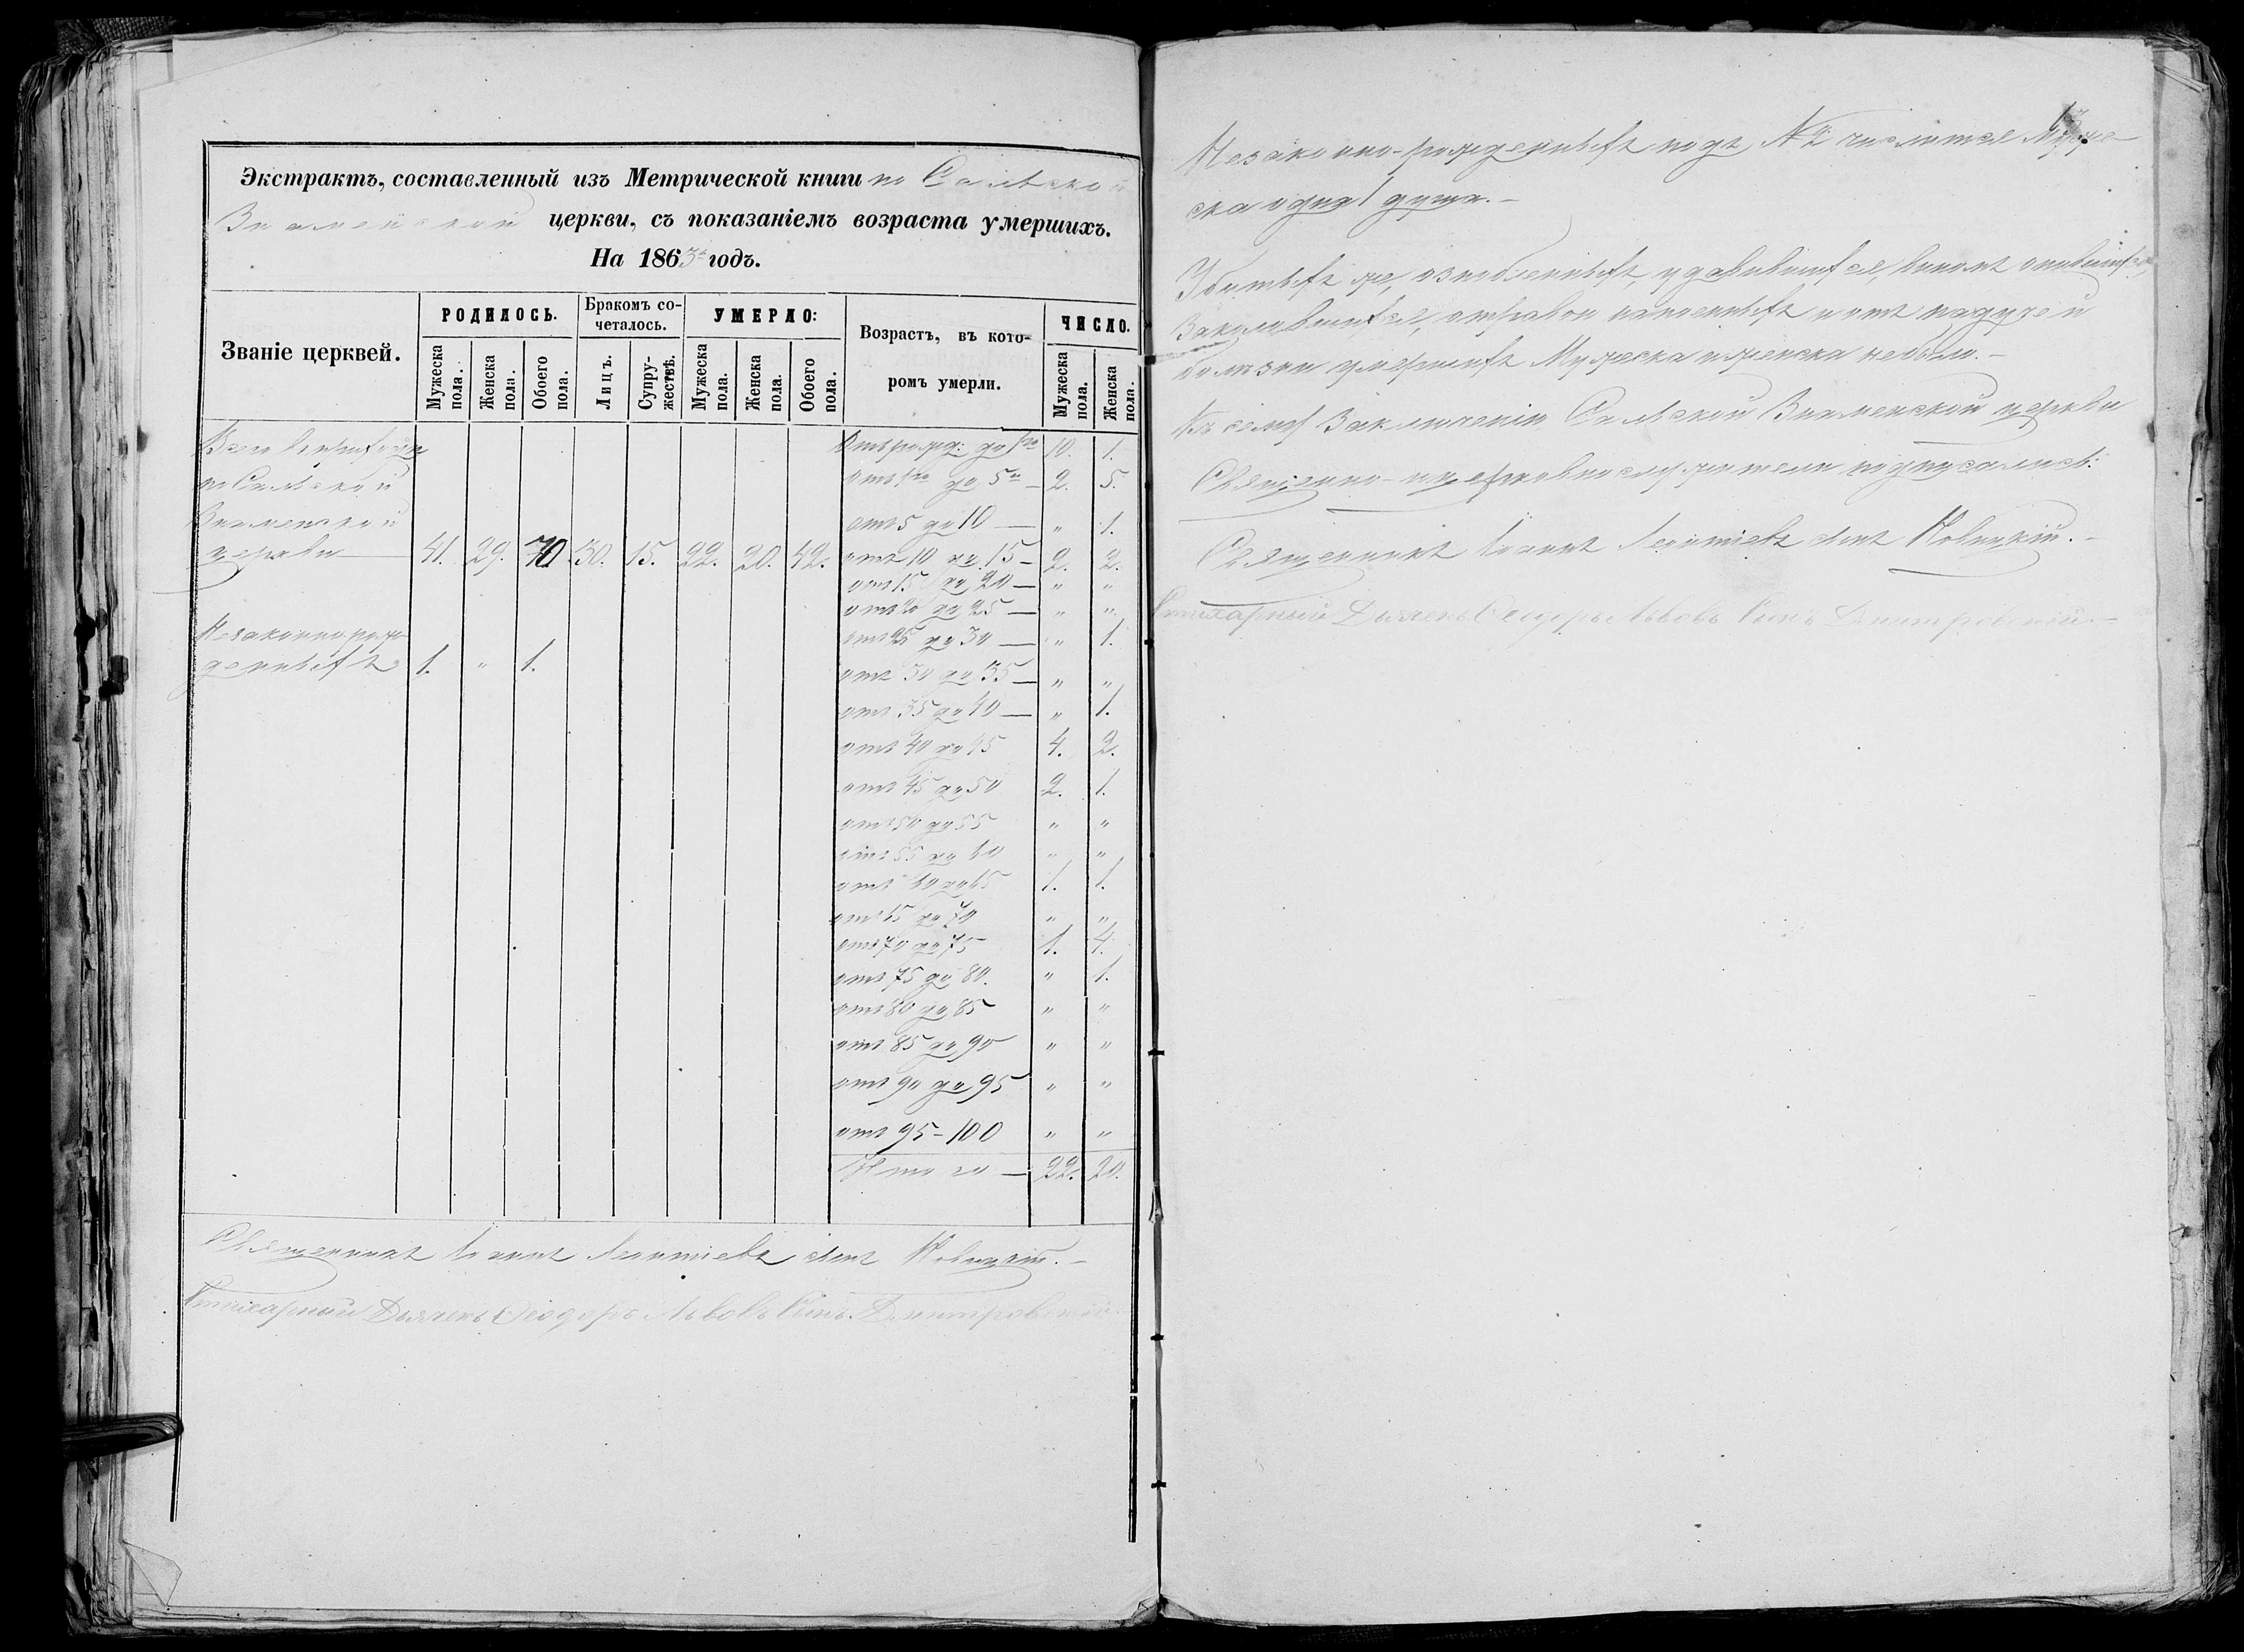 Экстрактъ, составленный изъ Метрической книги по Сальской
Знаменской церкви, съ показаніемъ возраста умершихъ.
На 1863й годъ.
Званіе церквей.
РОДИЛОСЬ.
Бракомъ со-
четалось.
УМЕРЛО:
Возрастъ, въ кото-
ромъ умерли.
ЧИСЛО.
Мужеска пола.
Женска пола.
Обоего пола.
Лицъ.
Супру-
жествъ.
Мужеска пола.
Женска пола.
Обоего пола.
Мужеска пола.
Женска пола.
Всего въ приходѣ
по Сальской
Знаменской
церкви 41. 29. 70. 30. 15. 22. 20. 42.
Незаконнорож-
денныхъ 1. " 1.
Отъ рожд: до 1го 10. 1.
отъ 1го до 5и 2. 5.
отъ 5 до 10 — " 1.
отъ 10 до 15 — 2. 2.
отъ 15 до 20 — " "
отъ 20 до 25 — " "
отъ 25 до 30 — " 1.
отъ 30 до 35 — " "
отъ 35 до 40 — " 1.
отъ 40 до 45 4. 2.
отъ 45 до 50 2. 1.
отъ 50 до 55 " "
отъ 55 до 60 " "
отъ 60 до 65 1. 1.
отъ 65 до 70 " "
отъ 70 до 75 1. 4.
отъ 75 до 80. " 1.
отъ 80 до 85 " "
отъ 85 до 90 " "
отъ 90 до 95 " "
отъ 95 – 100 " "
Итого — 22. 20.
Священникъ Іоаннъ Леонтіевъ сынъ Новицкій. –
Стихарный Дьячекъ Ѳеодоръ Львовъ Сынъ Дмитровскій
Незаконно-рожденныхъ подъ № 2 числится Муже-
ска одна 1 душа. –
Убитыхъ же, ознобленныхъ, удавившихся, виномъ опившихся,
Заколовшихся, отравой напоенныхъ и отъ падучей
болѣзни умершихъ Мужеска и женска небыло. –
Къ сему Заключенію Сальской Знаменской церкви
Священно-и-церковнослужители подписались:
Священникъ Іоаннъ Леонтіевъ сынъ Новицкій. –
Стихарный Дьячекъ Ѳеодоръ Львовъ Сынъ Дмитровскій. –